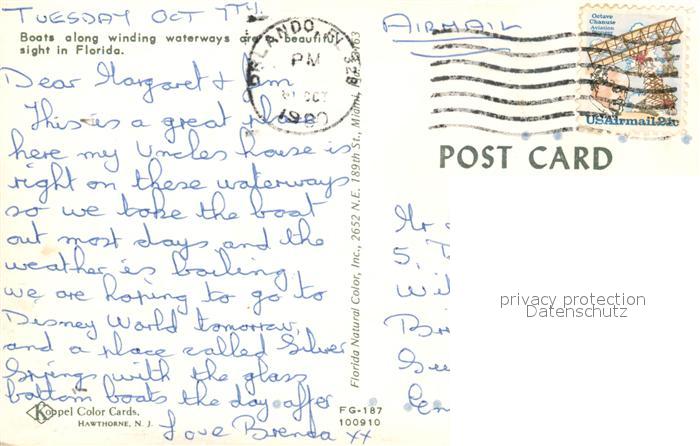 TUESDAY OCT 7TH.
Boats along winding waterways are a beautiful
sight in Florida.
Dear Margaret +
This is a great place
here my Uncles house is
right on these waterways
so we take the boat
out most days and the
weather is boiling.
we are hoping to go to
Disney World tomorrow,
and a place called Silver
Springs with the glass
bottom boats the day after
Love Brenda xx
Koppel Color Cards,
HAWTHORNE, N. J.
FG-187
100910
Florida Natural Color, Inc., 2652 N.E. 189th St., Miami, Fla. 33163
ORLANDO, FL 328
PM
OCT
1980
AIRMAIL
Octave
Chanute
Aviation
Pioneer
USAirmail 21c
POST CARD
Mr
5,
Wil
Bri
Su
En
privacy protection
Datenschutz